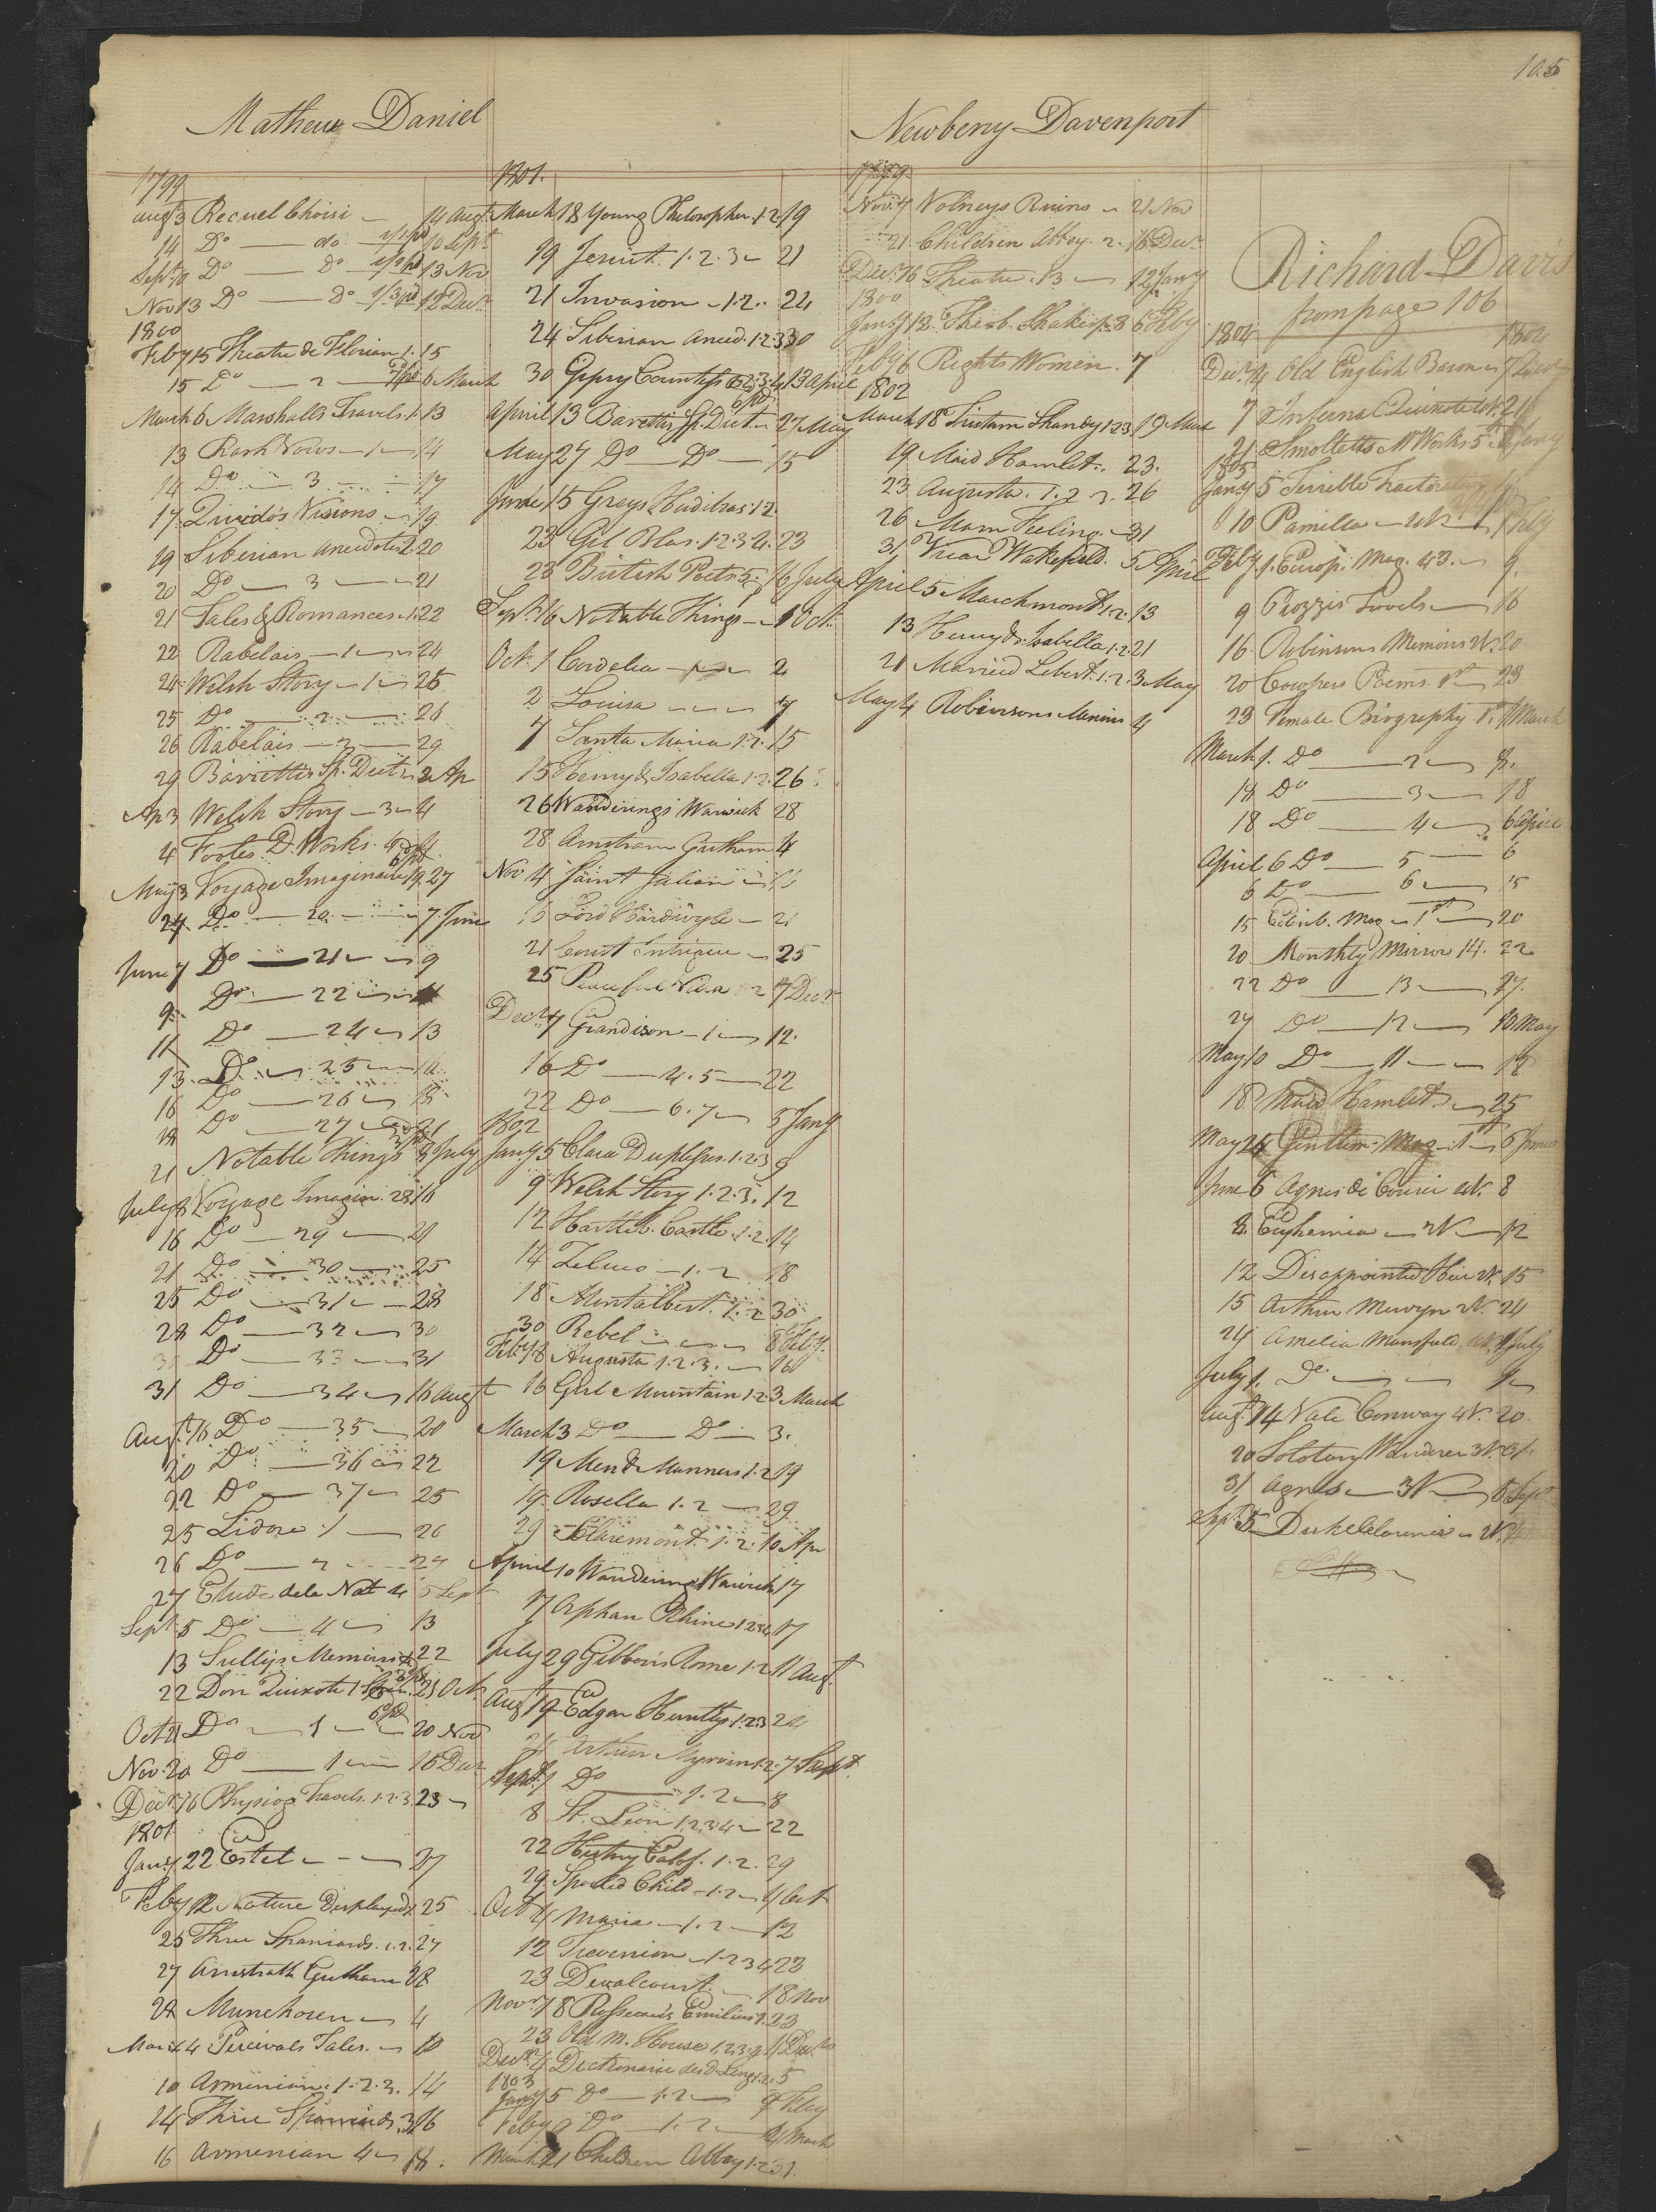 105
Mathew Daniel
1799
Augt 3 Recuel Choisi — 14 Augt
14 Do — do — 10 Sept
Sept 10 Do — Do — 13 Nov
Nov 13 Do — Do — 12 Decr
1800
Feby 15 Theatre de Florian 1. 15
15 Do — 2 — 6 March
March 6 Marshalls Travels. 1. 13
13 Rash Vows — 1 — 14
14 Do — 3 — 17
17 Quivedo's Visions — 19
19 Siberian Anecdotes 2 20
20 Do — 3 — 21
21 Tales & Romances. 1. 22
22 Rabelais — 1 — 24
24 Welsh Story — 1 — 25
25 Do — 2 — 26
26 Rabelais — 2 — 29
29 Barretties Sp. Dict. 3 Ap
Ap 3 Welsh Story — 3 — 4
4 Footes D. Works. 4
May 3 Voyage Imaginaire 19 27
27 Do — 20 — 7 June
June 7 Do — 21 — 9
9 Do — 22
11 Do — 24 — 13
13 Do — 25 — 16
16 Do — 26 — 18
18 Do — 27 — 21
21 Notable Things 8 July
July 8 Voyage Imagin. 28 16
16 Do — 29 — 21
21 Do — 30 — 25
25 Do — 31 — 28
28 Do — 32 — 30
30 Do — 33 — 31
31 Do — 34 — 16 Augt
Augt 16 Do — 35 — 20
20 Do — 36 — 22
22 Do — 37 — 25
25 Lidore 1 — 26
26 Do — 2 — 27
27 Etude de la Nat 4 5 Sept
Sept 5 Do — 4 — 13
13 Sullys Memoirs 22
22 Don Quixote 1 21 Oct
Oct 21 Do — 1 — 20 Nov
Nov 20 Do — 1 — 16 Decr
Decr 16 Physiog Travels. 1.2.3. 23
1801
Jany 22 Estel — 27
Feby 12 Nature Displayed 1. 25
25 Three Spaniards. 1.2. 27
27 Armstrath Gutham 28
28 Munchosen — 4
March 4 Percivals Tales. — 10
10 Armenian. 1.2.3. 14
14 Three Spaniards. 3 16
16 Armenian 4 — 18.
1801.
March 18 Young Philosopher. 1.2 19
19 Jesuit. 1.2.3 — 21
21 Invasion — 1.2. 24
24 Siberian Anecd. 1.2.3 30
30 Gipsy Countess 1.2.3.4 13 April
April 13 Barettis Sp. Dict. 27 May
May 27 Do — Do — 15
June 15 Greys Hudibras. 1.2.
23 Gil Blas. 1.2.3.4. 23
23 British Poets 5. 16 July
Sept. 16 Notable Things — 1 Oct.
Oct. 1 Cordelia — 2
2 Louisa — 7
7 Santa Maria 1.2. 15
15 Henry & Isabella 1.2. 26
26 Wanderings Warwick 28
28 Armstram Gutham 4
Nov 4 Saint Julian — 16
16 Lord Hardivyle — 21
21 Court Intrigue — 25
25 1.2 7 Decr
Decr 7 Grandison — 1 — 12.
16 Do — 4.5 — 22
22 Do — 6.7 — 5 Jany
1802
Jany 5 Clara Duplessis. 1.2.3 9
9 Welsh Story 1.2.3. 12
12 Hartleb. Castle. 1.2. 14
14 Zeluco — 1.2 18
18 Montalbert. 1.2 30
30 Rebel — 8 Feby.
Feby 8 Augusta 1.2.3. — 16
16 Girl Mountain 1.2 3 March
March 3 Do — Do — 3.
19 Men & Manners 1.2 19
19 Rosella 1.2 — 29
29 Claremont. 1.2. 10 Apr
April 10 Wandering Warwick 17
17 Orphan Rhine 1.2.3.4 17
July 29 Gibbons Rome 1.2 11 Augt.
Augt 19 Edgar Huntly 1.2.3 24
Arthur Myrvin 1.2. 7 Sept.
Sept. 7 Do — 1.2 — 8
8 St. Leon 1.2.3.4 — 22
22 Histry Calof. 1.2. 29
29 Spoiled Child — 1.2 — 4 Oct
Oct 4 Maria — 1.2 — 12
12 Trevanion — 1.2.3.4 23
23 Devalcourt — 18 Nov
Novr 18 Rosseau's Emilius 1. 23
23 Old M. House 1.2.3.4 4 Decr
Decr 4 Dictionaire des d. Leng 1.2. 5
1803
Jany 5 Do — 1.2 — 9 Feby
Feby 9 Do — 1.2 — 21 March
March 21 Children Abbey 1.2 31.
Newberry Davenport
1799.
Nov. 7 Volneys Ruins — 21 Nov
21 Children Abbey. 2. 16 Decr
Decr. 16 Theatre. 13 — 12 Jany
1800
Jany 12 Theob. Shakesp. 3 6 Feby
Feby 6 Rights Women. 7
1802
March 18 Tristam Shandy 1.2.3 19 March
19 Maid Hamlet. 23.
23 Augusta. 1.2.3. 26
26 Man Feeling. — 31
31 Vicar Wakefield. 5 April
April 5 Marchmont 1.2. 13
13 Henry & Isabella 1.2 21
21 Married Libert. 1.2. 3 May
May 4 Robinsons Memoirs 4
Richard Davis
from page 106
1804 1804
Decr. 4 Old English Baron 7 Decr
7 Infernal Quixote 21
21 Smolletts M Works 5 Jany
1805
Jany 5 Terrible Tractoration
10 Pamilla — 4 V — 1 Feby
Feby 1. Europ. Mag. 43. — 9.
9 Piozzis Travels — 16
16 Robinsons Memoirs 20
20 Cowpers Poems. 23
23 Female Biography 1 March
March 1. Do — 2 — 8.
18 Do — 3 — 18
18 Do — 4 — 6 April
April 6 Do — 5 — 6
6 Do — 6 — 15
15 Edinb. Mag — 1 — 20
20 Monthly Mirror 14. 22
22 Do — 13 — 27.
27 Do — 12 — 10 May
May 10 Do — 11 — 18
18 Maid Hamlet — 25
May 25 Gentlem. Mag. 1 — 6 June
June 6 Agnes de Courci 4V. 8
8 Euphemia — 12
12 Disappointed Heir 15
15 Arthur Mervyn 24
24 Amelia Mansfield 1 July
July 1. Do
Augt. 14 Vale Conway 4V. 20.
20 Solotary Wanderer 3V. 31.
31 Agnes — 3V — 5 Sept
Sept. 5